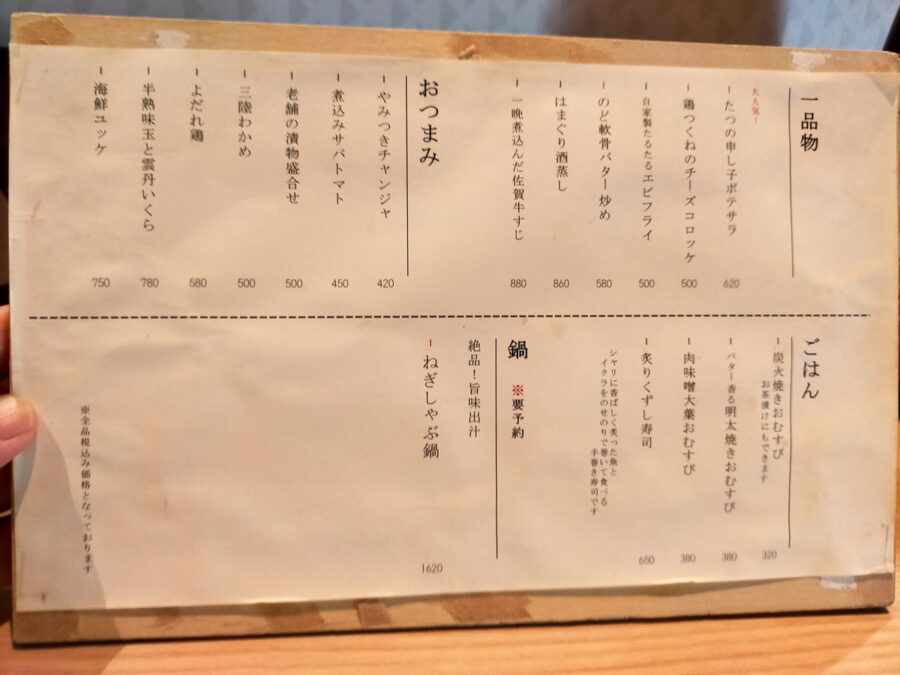 一品物
大人気！
たつの申し子ポテサラ
620
鶏つくねのチーズコロッケ
500
自家製たるたるエビフライ
500
のど軟骨バター炒め
580
はまぐり酒蒸し
860
一晩煮込んだ佐賀牛すじ
880
おつまみ
やみつきチャンジャ
420
煮込みサバトマト
450
老舗の漬物盛合せ
500
三陸わかめ
500
よだれ鶏
580
半熟味玉と雲丹いくら
780
海鮮ユッケ
750
ごはん
炭火焼きおむすび
お茶漬けにもできます
320
バター香る明太焼きおむすび
380
肉味噌大葉おむすび
380
炙りくずし寿司
650
シャリに香ばしく炙った魚と
イクラをのせのりで巻いて食べる
手巻き寿司です
鍋 ※要予約
絶品！旨味出汁
ねぎしゃぶ鍋
1620
※全品税込み価格となっております